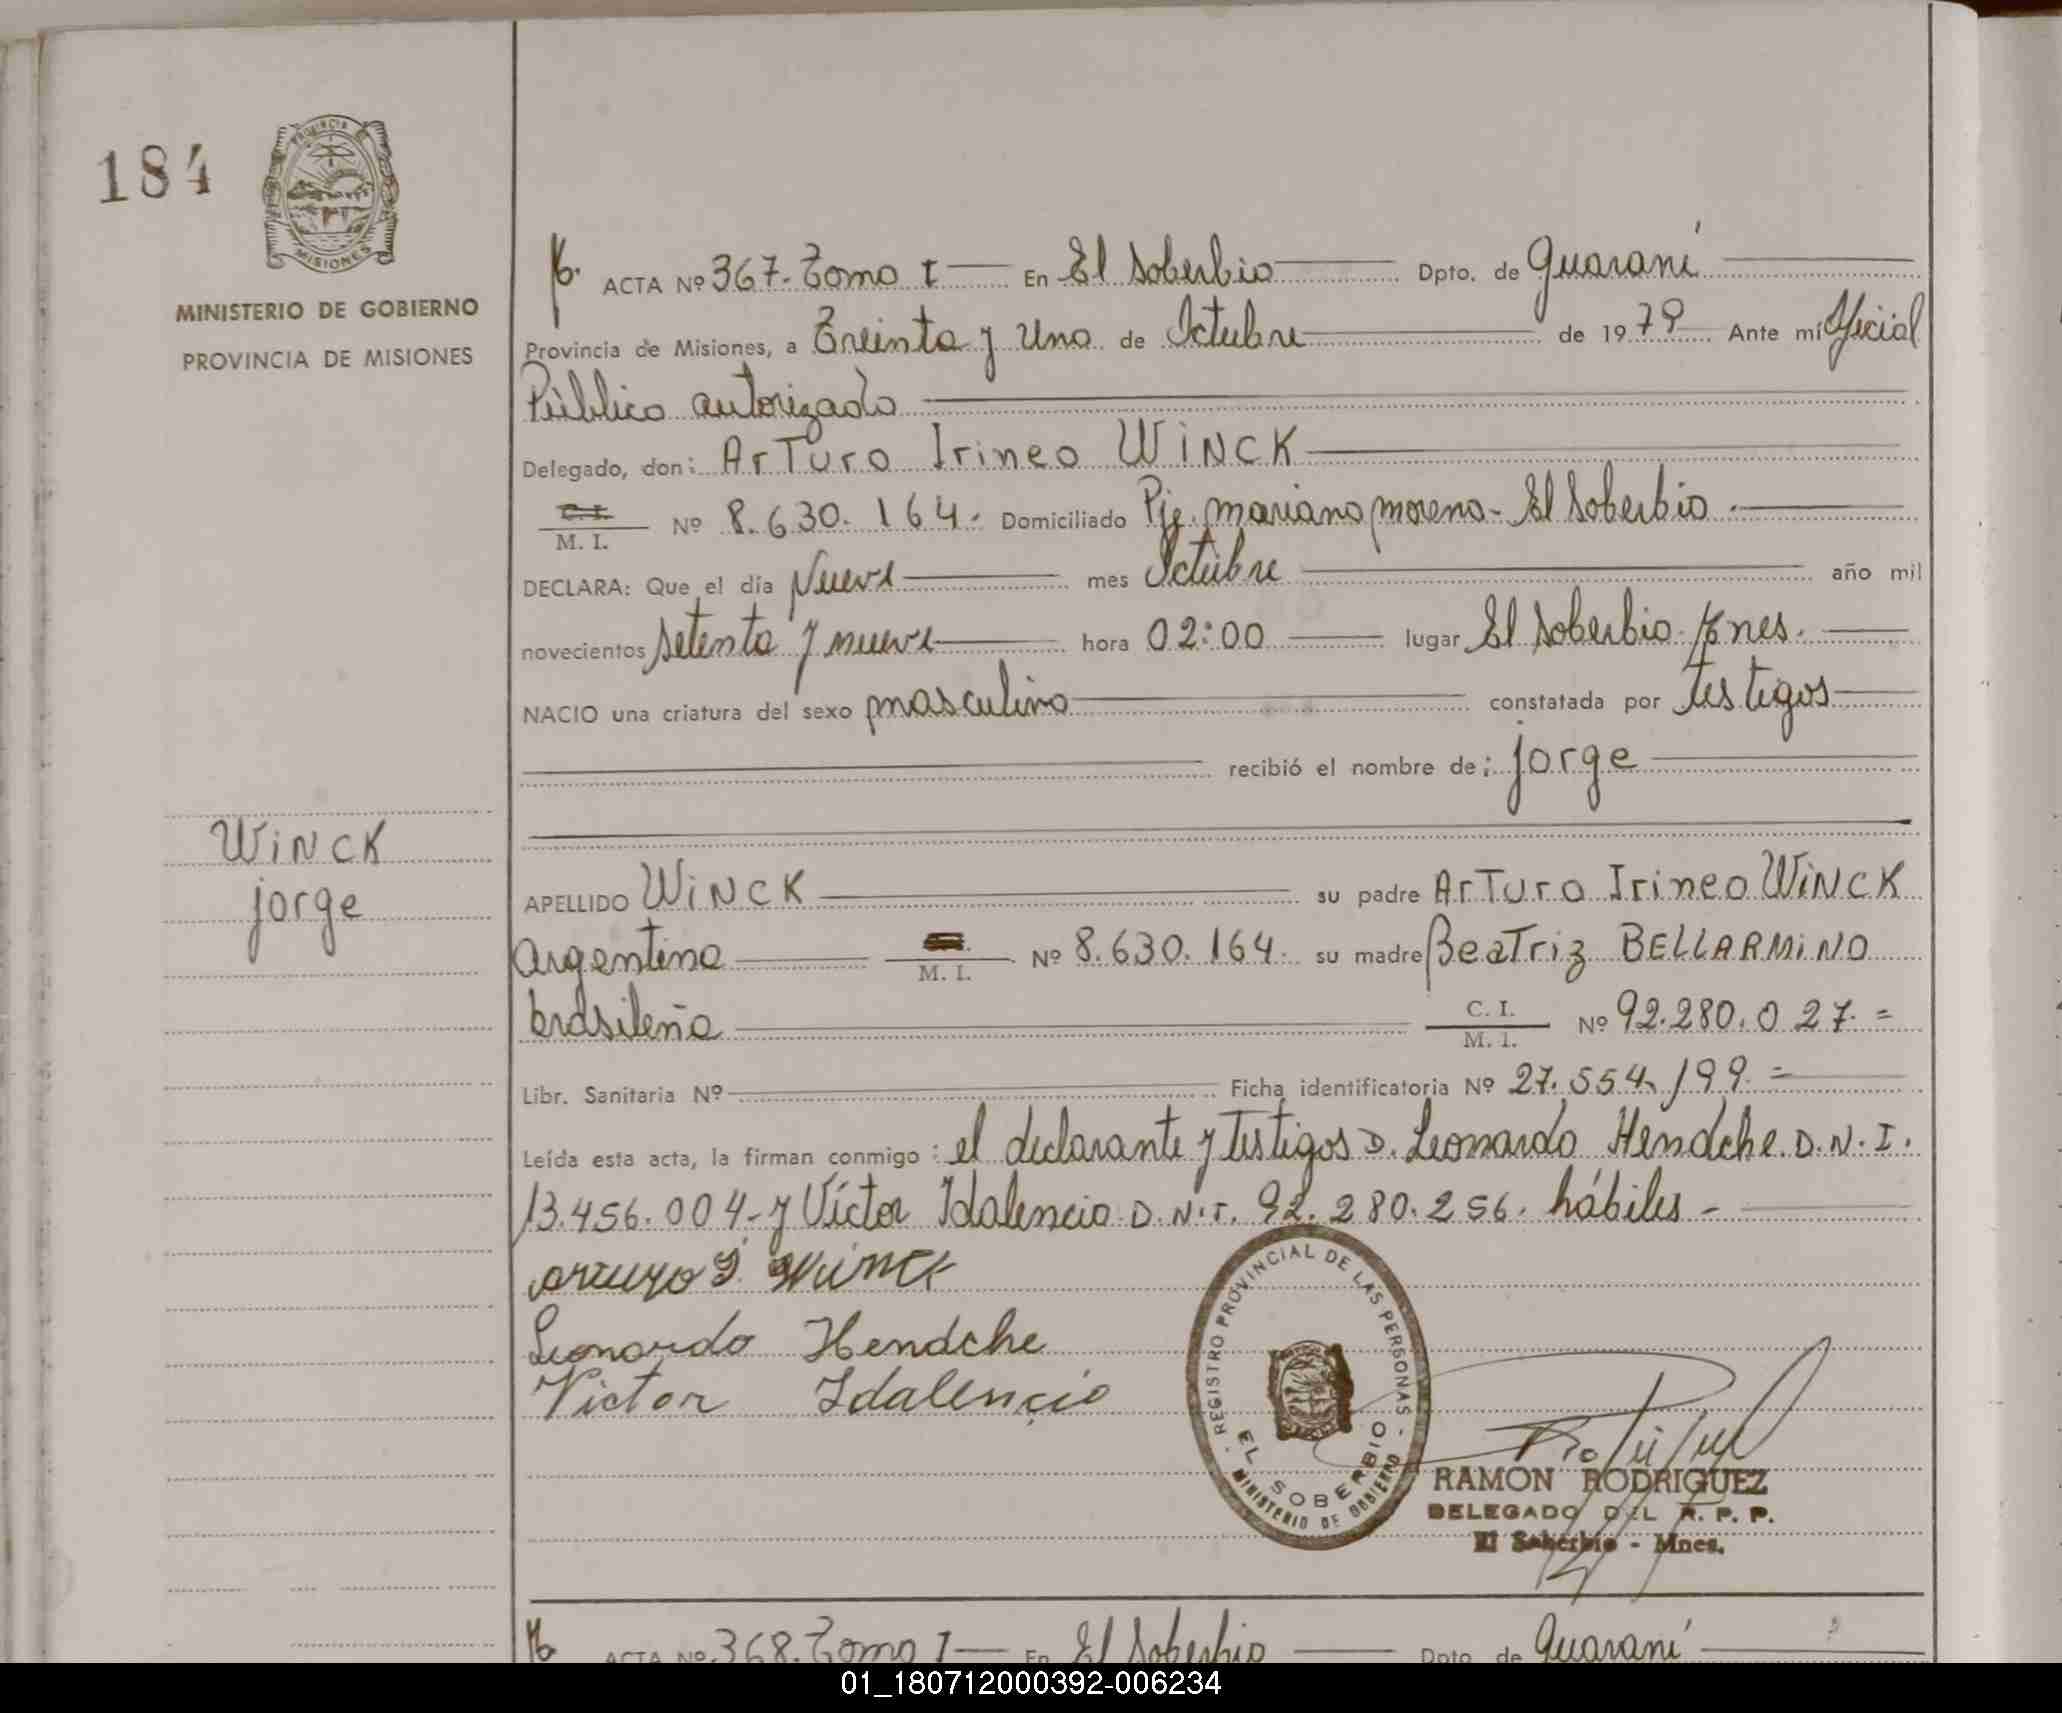 184
PROVINCIA DE
MISIONES
MINISTERIO DE GOBIERNO
PROVINCIA DE MISIONES
WINCK
jorge
ACTA Nº 367. Tomo I En El Soberbio Dpto. de Guaraní
Provincia de Misiones, a Treinta y Uno de Octubre de 1979 Ante mí Oficial
Público autorizado
Delegado, don: Arturo Irineo WINCK
C. I.
M. I. Nº 8.630.164. Domiciliado Pje. mariano moreno - El Soberbio
DECLARA: Que el día Nueve mes Octubre año mil
novecientos setenta y nueve hora 02:00 lugar El Soberbio Mnes.
NACIO una criatura del sexo masculino constatada por testigos
recibió el nombre de: jorge
APELLIDO WINCK su padre Arturo Irineo WINCK
argentino M. I. Nº 8.630.164. su madre Beatriz BELLARMINO
brasileña C. I. M. I. Nº 92.280.027. =
Libr. Sanitaria Nº Ficha identificatoria Nº 27.554.199. =
Leída esta acta, la firman conmigo: el declarante y testigos D. Leonardo Hendche. D.N.I.
13.456.004- y Víctor Idalencio D.N.I. 92.280.256. hábiles -
arturo I. Winck
Leonardo Hendche
Victor Idalencio
REGISTRO PROVINCIAL DE LAS PERSONAS
EL SOBERBIO
MINISTERIO DE GOBIERNO
RAMON RODRIGUEZ
DELEGADO DEL R. P. P.
El Soberbio - Mnes.
ACTA Nº 368. Tomo I En El Soberbio Dpto. de Guaraní
01_180712000392-006234